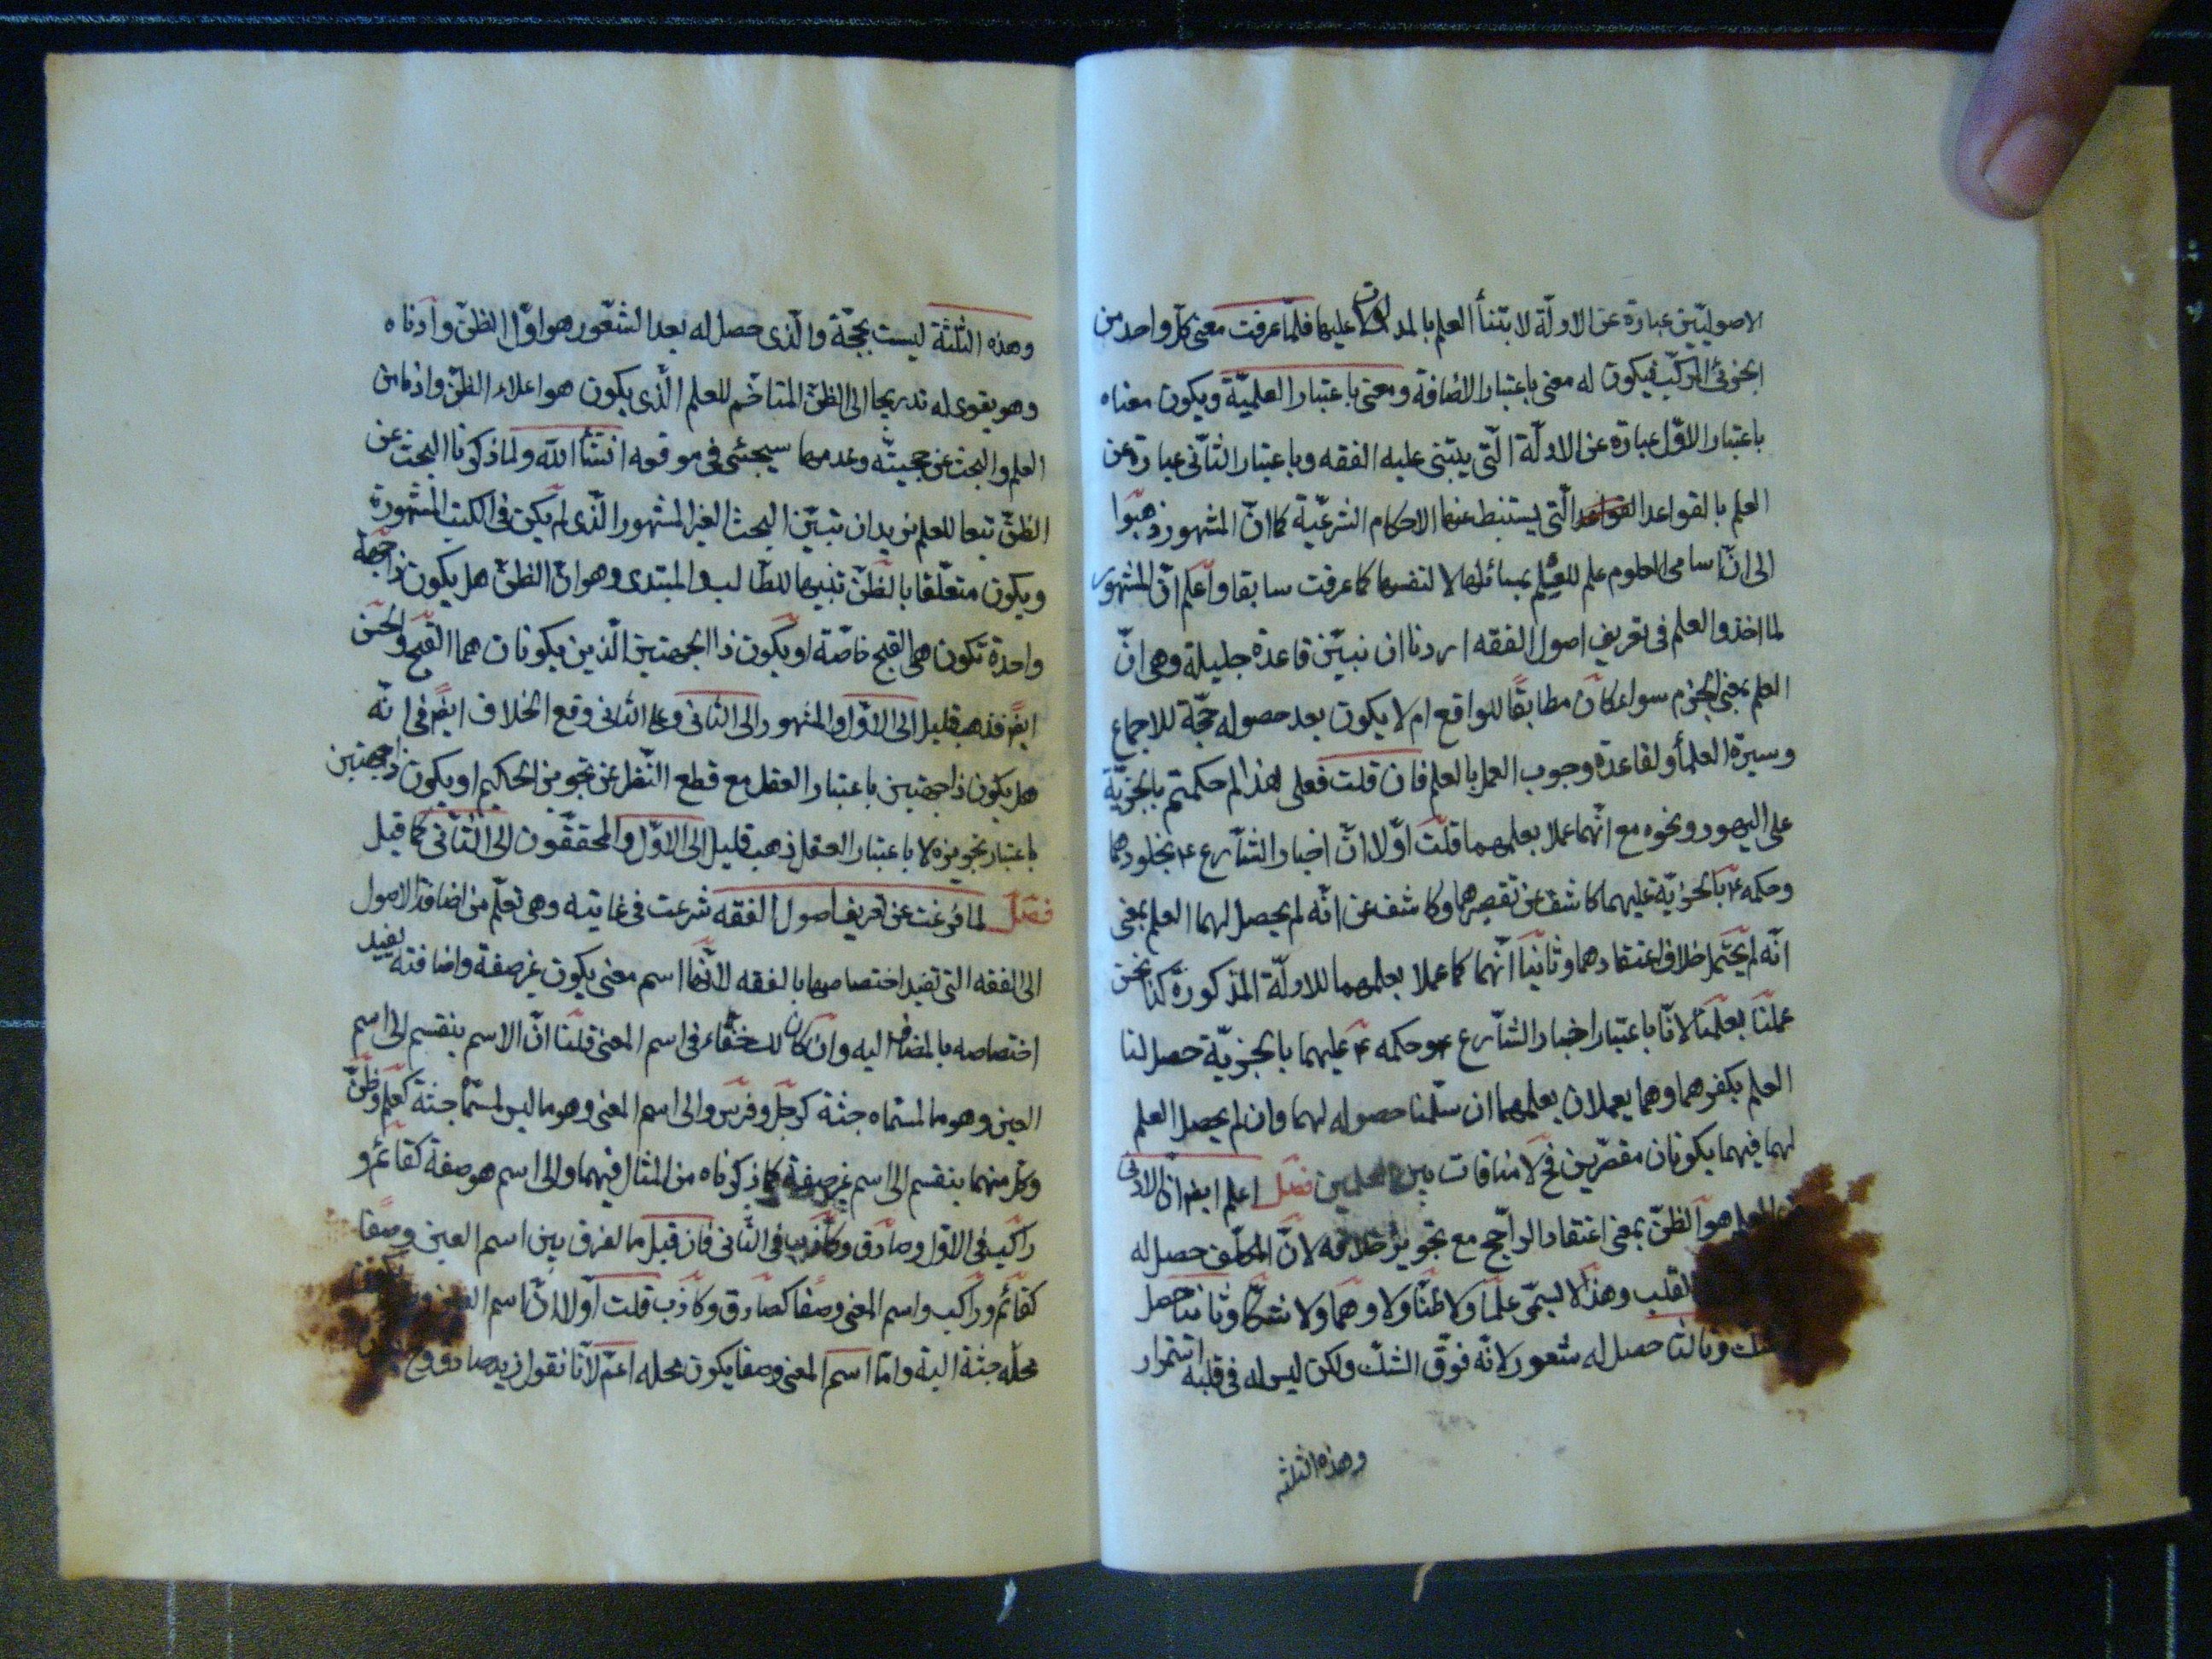 الاصوليّين عبارة عن الادلّة لابتنأ العلم بالمدلول عليها فلمّا عرفت معنى كلّ واحد من
الجزئى المركّب فيكون له معنى باعتبار الاضافة ومعنى باعتبار العلميّة ويكون معناه
باعتبار الاوّل عبارة عن الادلّة الّتى يبتنى عليه الفقه وباعتبار الثّانى عبارة عن
العلم بالقواعد الّتى يستنبط عنها الاحكام الشرعيّة كما انّ المشهور ذهبوا
الى انّ اسامى العلوم علم للعلم بمسائلها لا لنفسها كما عرفت سابقا واعلم انّ المشهور
لما اخذوا العلم فى تعريف اصول الفقه اردنا ان نبيّن قاعدة جليلة وهى انّ
العلم بمعنى الجزم سواء كان مطابقًا للواقع ام لا يكون بعد حصوله حجّة للاجماع
وسيرة العلمأ ولقاعدة وجوب العمل بالعلم فان قلت فعلى هذا لم حكمتم بالجزيّة
على اليهود ونحوه مع انّهما عملا بعلمهما قلت اوّلا انّ اخبار الشّارع ع بخلودهما
وحكمه ع بالجزيّة عليهما كاشف عن تقصيرهما وكاشف عن انّه لم يحصل لهما العلم بمعنى
انّه لم يحتمل خلاف اعتقادهما وثانيًا انّهما كما عملا بعلمهما للادلّة المذكورة كنا نحن
عملنا بعلمنا لانّا باعتبار اخبار الشّارع ع وحكمه ع عليهما بالجزيّة حصل لنا
العلم بكفرهما وهما يعملان بعلمهما ان سلّمنا حصوله لهما وان لم يحصل العلم
لهما فيهما يكونان مقصّرين فح لا منافات بين العلمين فصل اعلم ايضا انّ الادنى
العلم هو الظنّ بمعنى اعتقاد الرّاجح مع تجويز خلافه لانّ المكلّف حصل له
القلب وهذا لا يسمّى علمًا ولا ظنًّا ولا وهمًا ولا شكًّا وثانيا حصل
شك وثالثا حصل له شعور لانّه فوق الشكّ ولكن ليس له فى قلبه استمرار
وهذه الثلثه
وهذه الثلثة ليست بحجّة والّذى حصل له بعد الشعور هو اوّل الظنّ وادناه
وهو يقوى له تدريجا الى الظنّ المتاخّم للعلم الّذى يكون هو اعلاء الظنّ وادنا من
العلم والبحث عن حجيتّه وعدمها سيجئى فى موقعه انشأ الله ولما ذكرنا البحث عن
الظنّ تبعا للعلم نريد ان نبيّن البحث الغير المشهور الّذى لم يكن فى الكتب المشهورة
ويكون متعلّقا بالظنّ تنبيها للطّالب والمبتدى وهو انّ الظنّ هل يكون ذا جهة
واحدة تكون هى القبح خاصّة او يكون ذا الجهتين الّذين يكونان هما القبح والحسن
ايضًا فذهب قليل الى الاوّل والمشهور الى الثانى وعلى الثانى وقع الخلاف ايضًا فى انّه
هل يكون ذا جهتين باعتبار العقل مع قطع النّظر عن تجويز الحكيم او يكون ذا جهتين
باعتبار تجويزه لا باعتبار العقل ذهب قليل الى الاوّل والمحققّون الى الثّانى كما قيل
فصل لما فرغت عن تعريف اصول الفقه شرعت فى غايته وهى تعلّم من اضافة الاصول
الى الفقه التى تفيد اختصاصها بالفقه لانّها اسم معنى يكون غير صفة واضافته يفيد
اختصاصه بالمضاف اليه وان كان لك خفاء فى اسم المعنى قلنا انّ الاسم ينقسم الى اسم
العين وهو ما لمسمّاه جثة كرجل وفرس والى اسم المعنى وهو ما ليس لمسمّا جثة كعلم وظنّ
وكلّ منهما ينقسم الى اسم غير صفة كما ذكرناه من المثال فيهما والى اسم هو صفة كقائم و
راكب فى الاوّل وصادق وكاذب فى الثّانى فان قيل ما الفرق بين اسم العين وصفًا
كقائم وراكب واسم المعنى وصفًا كصادق وكاذب قلت اوّلا انّ اسم
محلّه جثة البتة وامّا اسم المعنى وصفا يكون محله اعمّ لانّا نقول زيد صادق